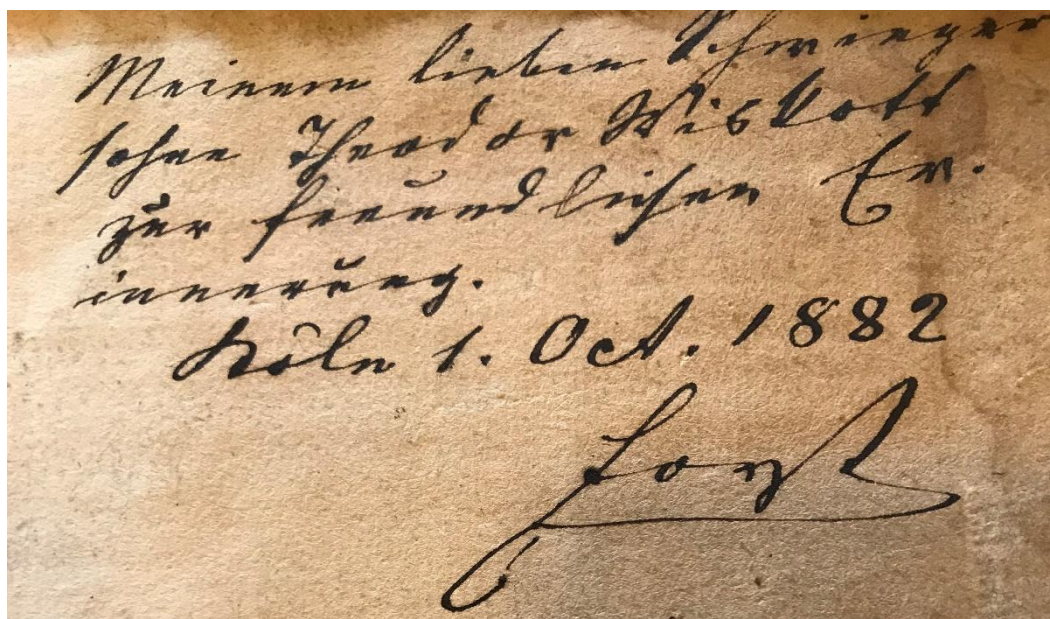 Meinem lieben Schwieger
sohne Theodor Wiskott
zur freundlichen Er-
innerung.
Köln 1. Oct. 1882